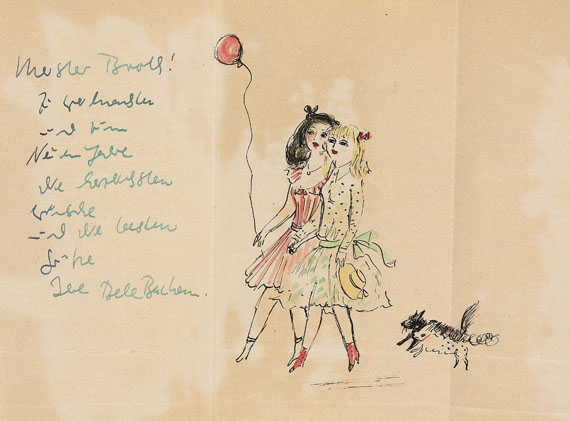 Meister Broth!
Zu Weihnachten
und zum
Neuen Jahre
die herzlichsten
Wünsche
und die besten
Grüße
Ihre Bele Bachem.